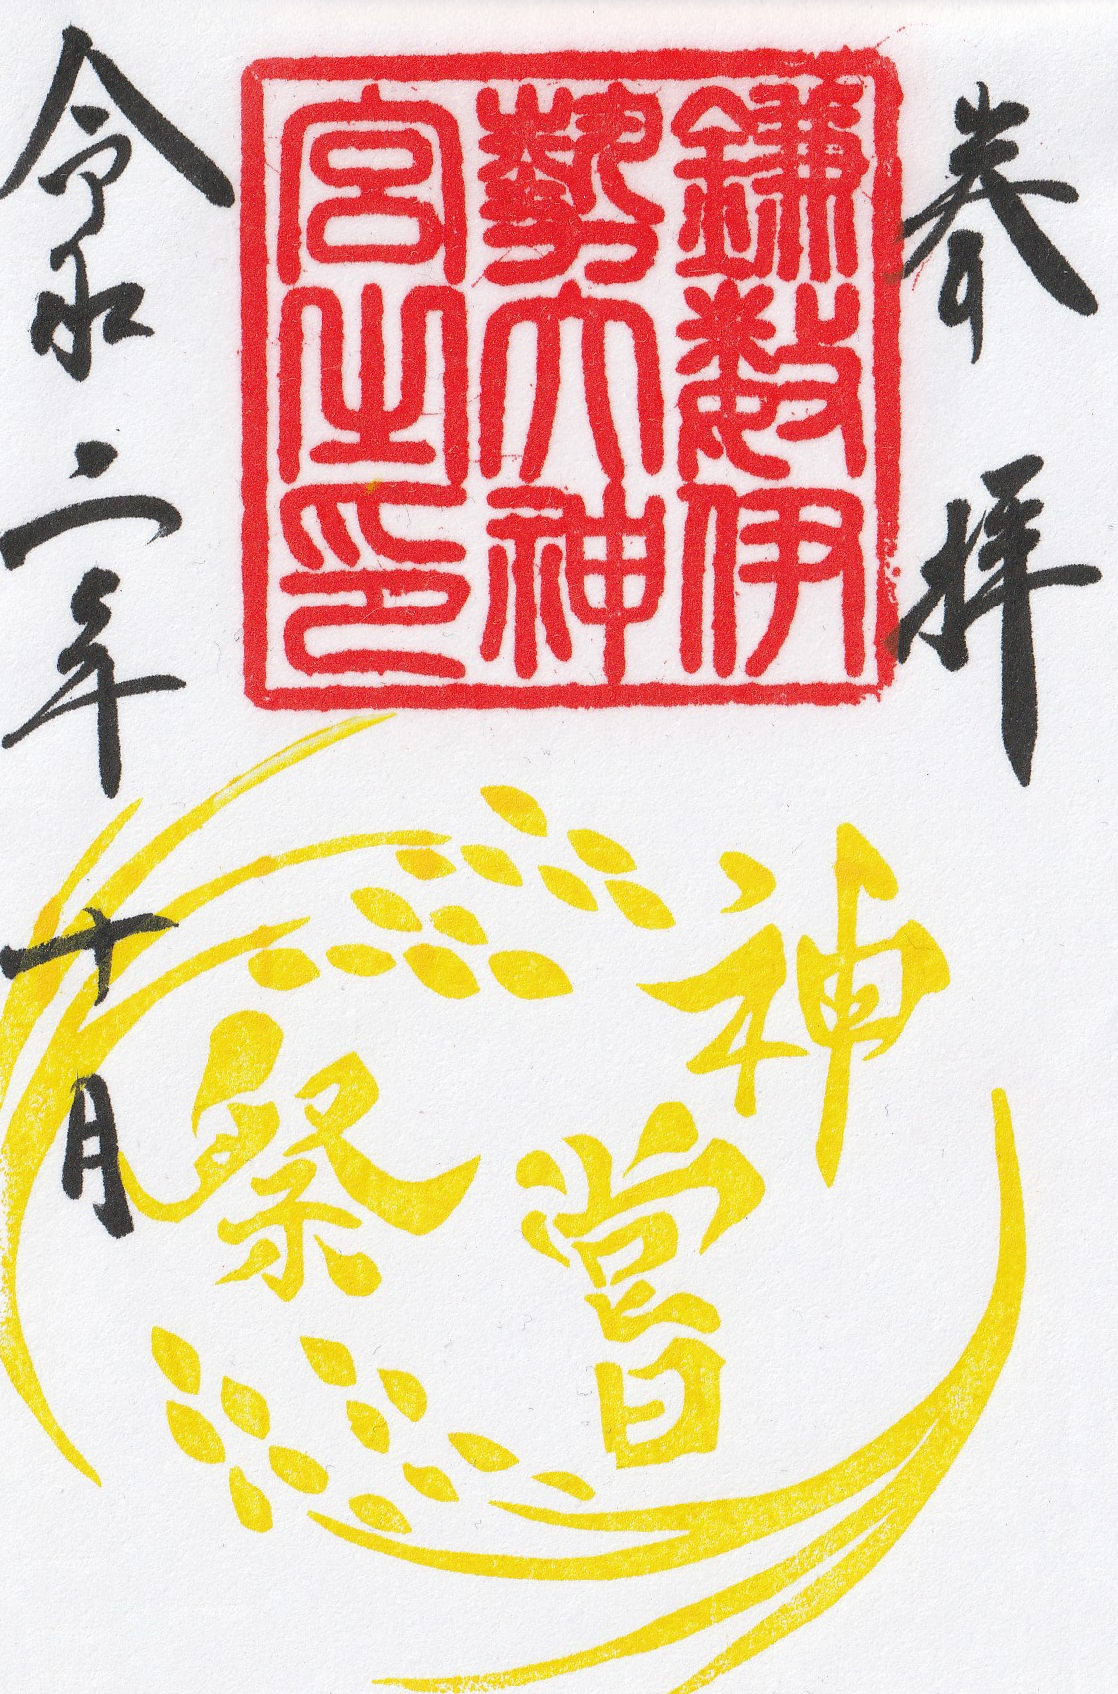 奉拝
鎌数伊
勢大神
宮之印
令和二年十月
神
嘗
祭